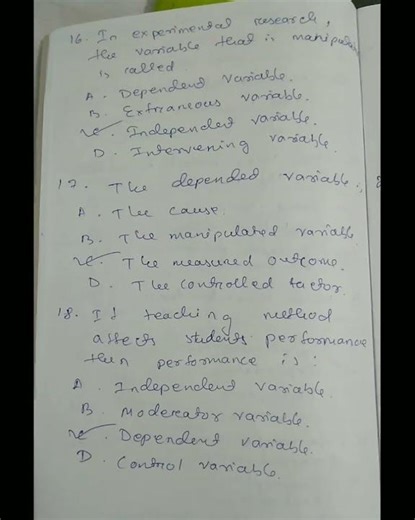 16. In experimental research,
the variable that is manipula
is called
A. Dependent variable.
B. Extraneous variable.
C. Independent variable.
D. Intervening variable.
17. The depended variable.
A. The cause.
B. The manipulated variable
C. The measured outcome.
D. The controlled factor.
18. If teaching method
affects students performance
then performance is:
A. Independent variable.
B. Moderator variable.
C. Dependent variable.
D. Control variable.